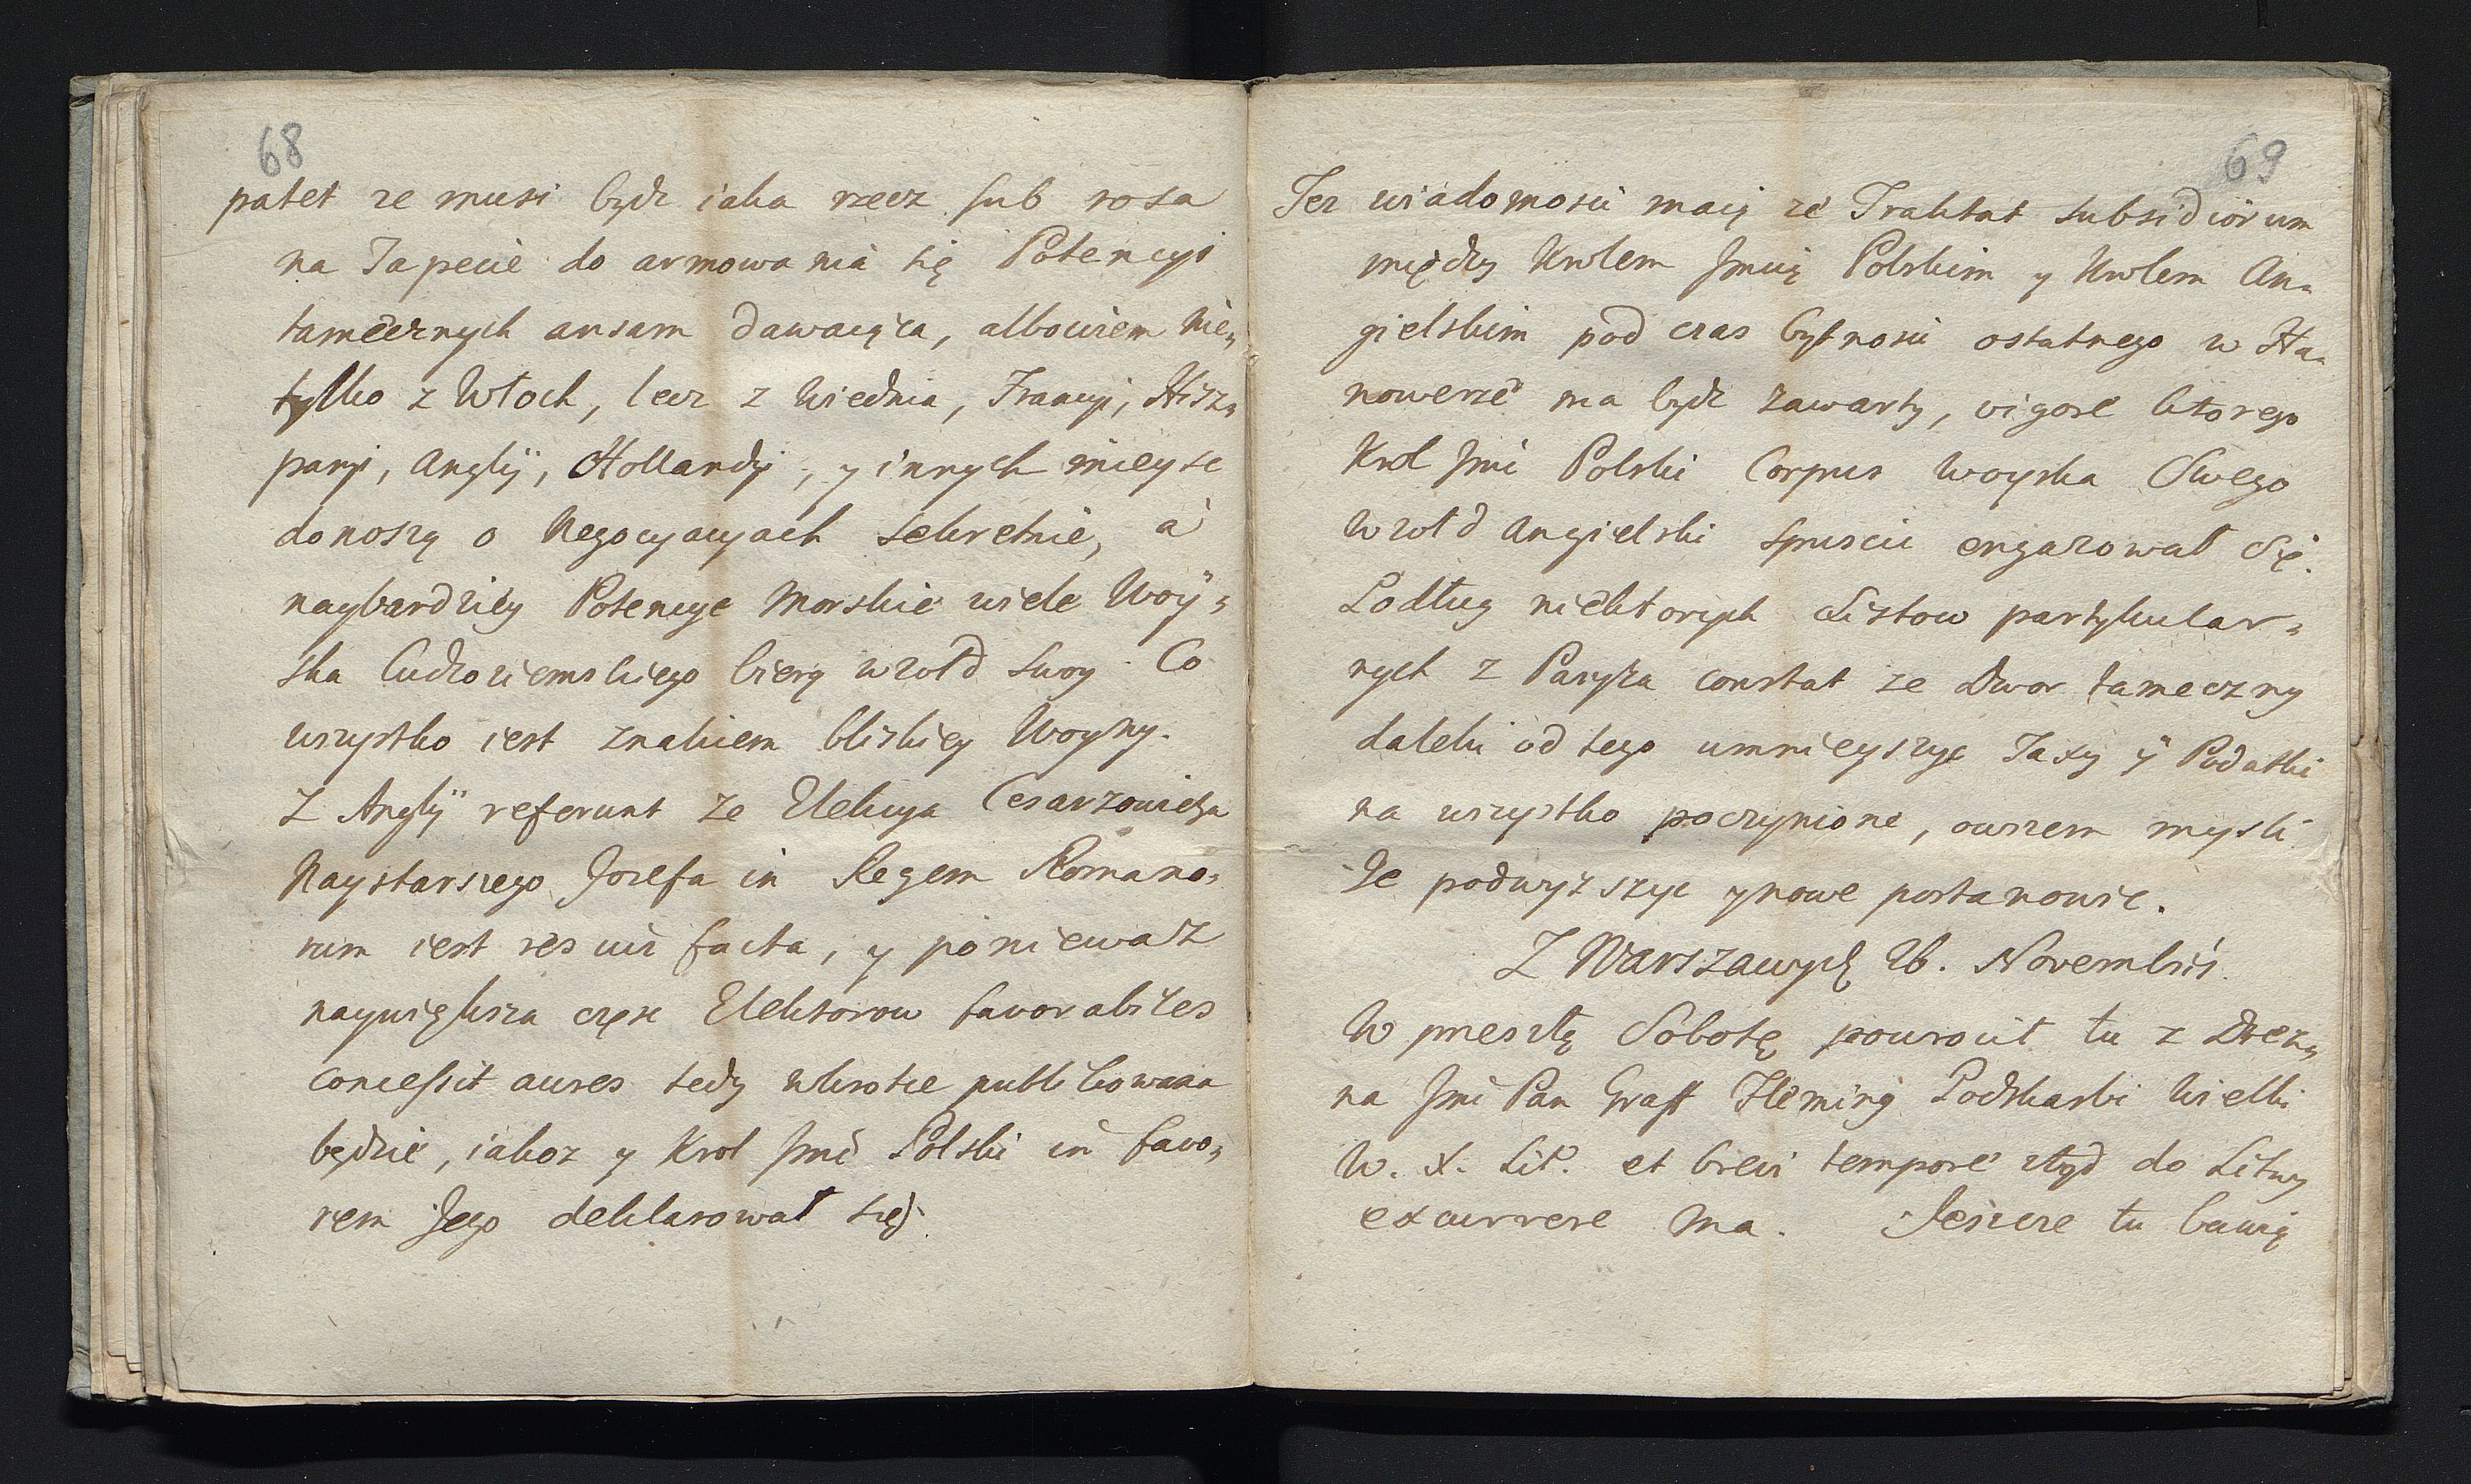 68
patet ze musi bydz iaka rzecz sub rosa
na Tapecie do armowania się Potencyi
tamecznych ansam dawaiąca, albowiem nie„
tylko z Włoch, lecz z Wiednia, Francyi, Hisz„
panyi, Anglÿ, Hollandyi, y innych mieysc
donoszą o Negocyacyach sekretnie, a
naybardziey Potencye Morskie wiele Woÿ„
ska Cudzoziemskiego bierą w zołd swoy. Co
wszystko iest znakiem bliskiey Woyny.
Z Anglÿ referunt ze Elekcya Cesarzowicza
Naystarszego Jozefa in Regem Romano„
rum iest res uti facta, y poniewaz
naywiększa częsc Elektorow favorabiles
concessit aures tedy wkrotce publikowana
będzie, iakoz y Krol Jmć Polski in favo„
rem Jego deklarował się.
69
Tez wiadomosci maią ze Traktat subsidiorum
między Krolem Jmcią Polskim y Krolem An„
gielskim pod czas bytnosci ostatnego w Ha„
nowerze ma bydz zawarty, vigore ktorego
Krol Jmć Polski Corpus Woyska Swego
w zołd Angielski spuscic engazował Się.
Podług niektorych Listow partykular„
nych z Paryża constat ze Dwor tameczny
daleki od tego umnieyszyc Taxy ÿ Podatki
na wszystko poczynione, owszem mysli
Je podwyzszyc y nowe postanowic.
Z Warszawy d. 26. Novembris
W przeszłą Sobotę powrocił tu z Drez„
na Jmć Pan Graff Fleming Podskarbi Wielki
W. X. Lit. et brevi tempore ztąd do Litwy
excurrere ma. Jeszcze tu bawią